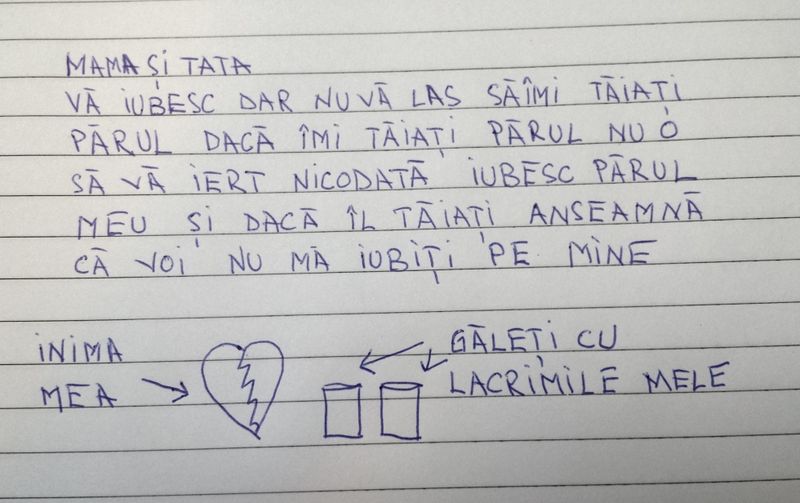 MAMA ȘI TATA
VĂ IUBESC DAR NU VĂ LAS SĂÎMI TĂIAȚI
PĂRUL DACĂ ÎMI TĂIAȚI PĂRUL NU O
SĂ VĂ IERT NICODATĂ IUBESC PĂRUL
MEU ȘI DACĂ ÎL TĂIAȚI ANSEAMNĂ
CĂ VOI NU MĂ IUBIȚI PE MINE
INIMA
MEA
GĂLEȚI CU
LACRIMILE MELE